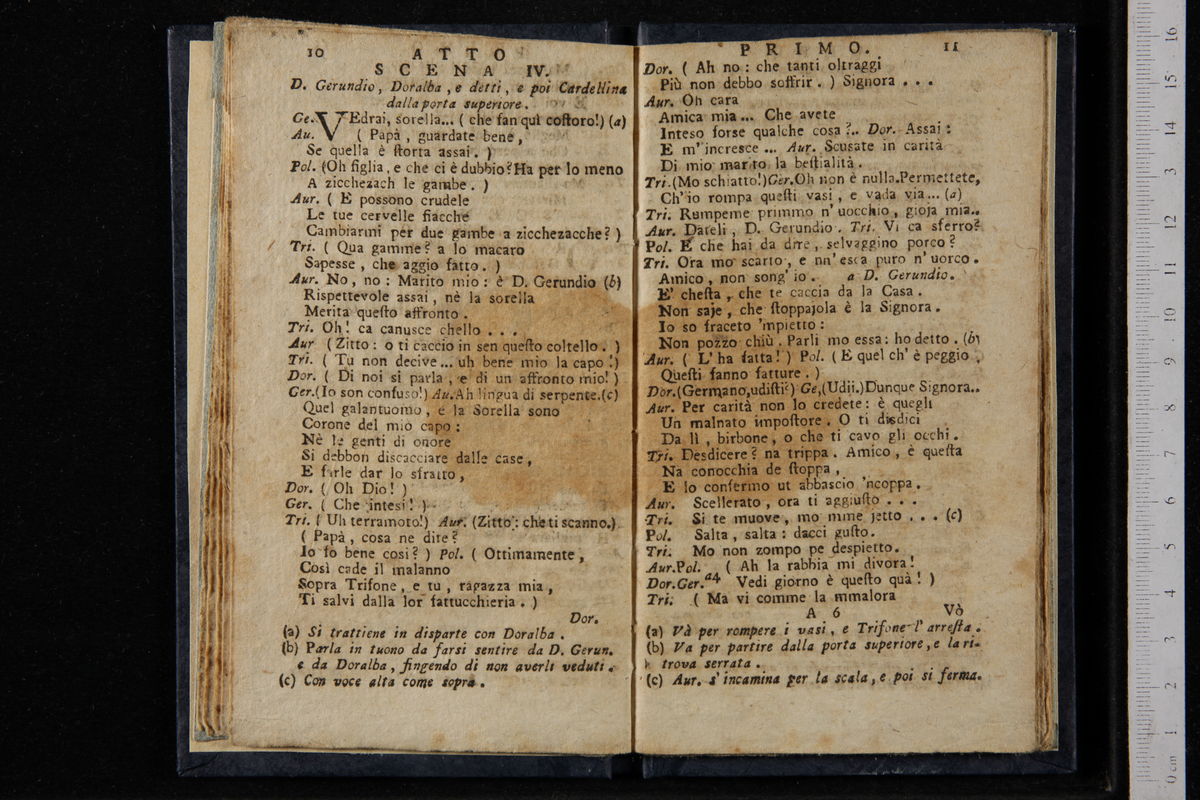 10 ATTO
SCENA IV.
D. Gerundio, Doralba, e detti, e poi Cardellina
dalla porta superiore.
Ge. VEdrai, sorella... ( che fan quì coſtoro!) (a)
Au. ( Papà, guardate bene,
Se quella è ſtorta assai. )
Pol. (Oh figlia, e che ci è dubbio? Ha per lo meno
A zicchezach le gambe. )
Aur. ( E possono crudele
Le tue cervelle fiacche
Cambiarmi per due gambe a zicchezacche? )
Tri. ( Qua gamme? a lo macaro
Sapesse, che aggio fatto. )
Aur. No, no: Marito mio: è D. Gerundio (b)
Rispettevole assai, nè la sorella
Merita queſto affronto.
Tri. Oh! ca canusce chello . . .
Aur (Zitto: o ti caccio in sen queſto coltello. )
Tri. ( Tu non decive... uh bene mio la capo!)
Dor. ( Di noi si parla, e di un affronto mio! )
Ger. (Io son confuso!) Au. Ah lingua di serpente. (c)
Quel galantuomo, e la Sorella sono
Corone del mio capo:
Nè le genti di onore
Si debbon discacciare dalle case,
E farle dar lo sfratto,
Dor. ( Oh Dio! )
Ger. ( Che intesi! )
Tri. ( Uh terramoto!) Aur. (Zitto: che ti scanno.)
( Papà, cosa ne dite?
Io fo bene così? ) Pol. ( Ottimamente,
Così cade il malanno
Sopra Trifone, e tu, ragazza mia,
Ti salvi dalla lor fattucchieria. )
Dor.
(a) Si trattiene in disparte con Doralba.
(b) Parla in tuono da farsi sentire da D. Gerun.
e da Doralba, fingendo di non averli veduti.
(c) Con voce alta come sopra.
PRIMO. 11
Dor. ( Ah no: che tanti oltraggi
Più non debbo soffrir. ) Signora . . .
Aur. Oh cara
Amica mia... Che avete
Inteso forse qualche cosa?.. Dor. Assai:
E m'incresce ... Aur. Scusate in carità
Di mio marito la beſtialità.
Tri. (Mo schiatto!) Ger. Oh non è nulla. Permettete,
Ch'io rompa queſti vasi, e vada via... (a)
Tri. Rumpeme primmo n'uocchio, gioja mia..
Aur. Dateli, D. Gerundio. Tri. Vi ca sferro?
Pol. E che hai da dire, selvaggino porco?
Tri. Ora mo scarto, e nn'esca puro n'uorco.
Amico, non song'io. a D. Gerundio.
E' cheſta, che te caccia da la Casa.
Non saje, che ſtoppajola è la Signora.
Io so fraceto 'mpietto:
Non pozzo chiù. Parli mo essa: ho detto. (b)
Aur. ( L'ha fatta! ) Pol. ( E quel ch'è peggio,
Queſti fanno fatture. )
Dor. (Germano, udiſti?) Ge, (Udii.) Dunque Signora..
Aur. Per carità non lo credete: è quegli
Un malnato impoſtore. O ti disdici
Da lì, birbone, o che ti cavo gli occhi.
Tri. Desdicere? na trippa. Amico, è queſta
Na conocchia de ſtoppa,
E lo confermo ut abbascio 'ncoppa.
Aur. Scellerato, ora ti aggiuſto . . .
Tri. Si te muove, mo mme jetto . . . (c)
Pol. Salta, salta: dacci guſto.
Tri. Mo non zompo pe despietto.
Aur. Pol. ( Ah la rabbia mi divora!
Dor. Ger. a4 Vedi giorno è queſto quà! )
Tri. ( Ma vi comme la mmalora
A 6 Vò
(a) Và per rompere i vasi, e Trifone l'arreſta.
(b) Va per partire dalla porta superiore, e la ri-
trova serrata.
(c) Aur. s'incamina per la scala, e poi si ferma.
0 cm 1 2 3 4 5 6 7 8 9 10 11 12 13 14 15 16